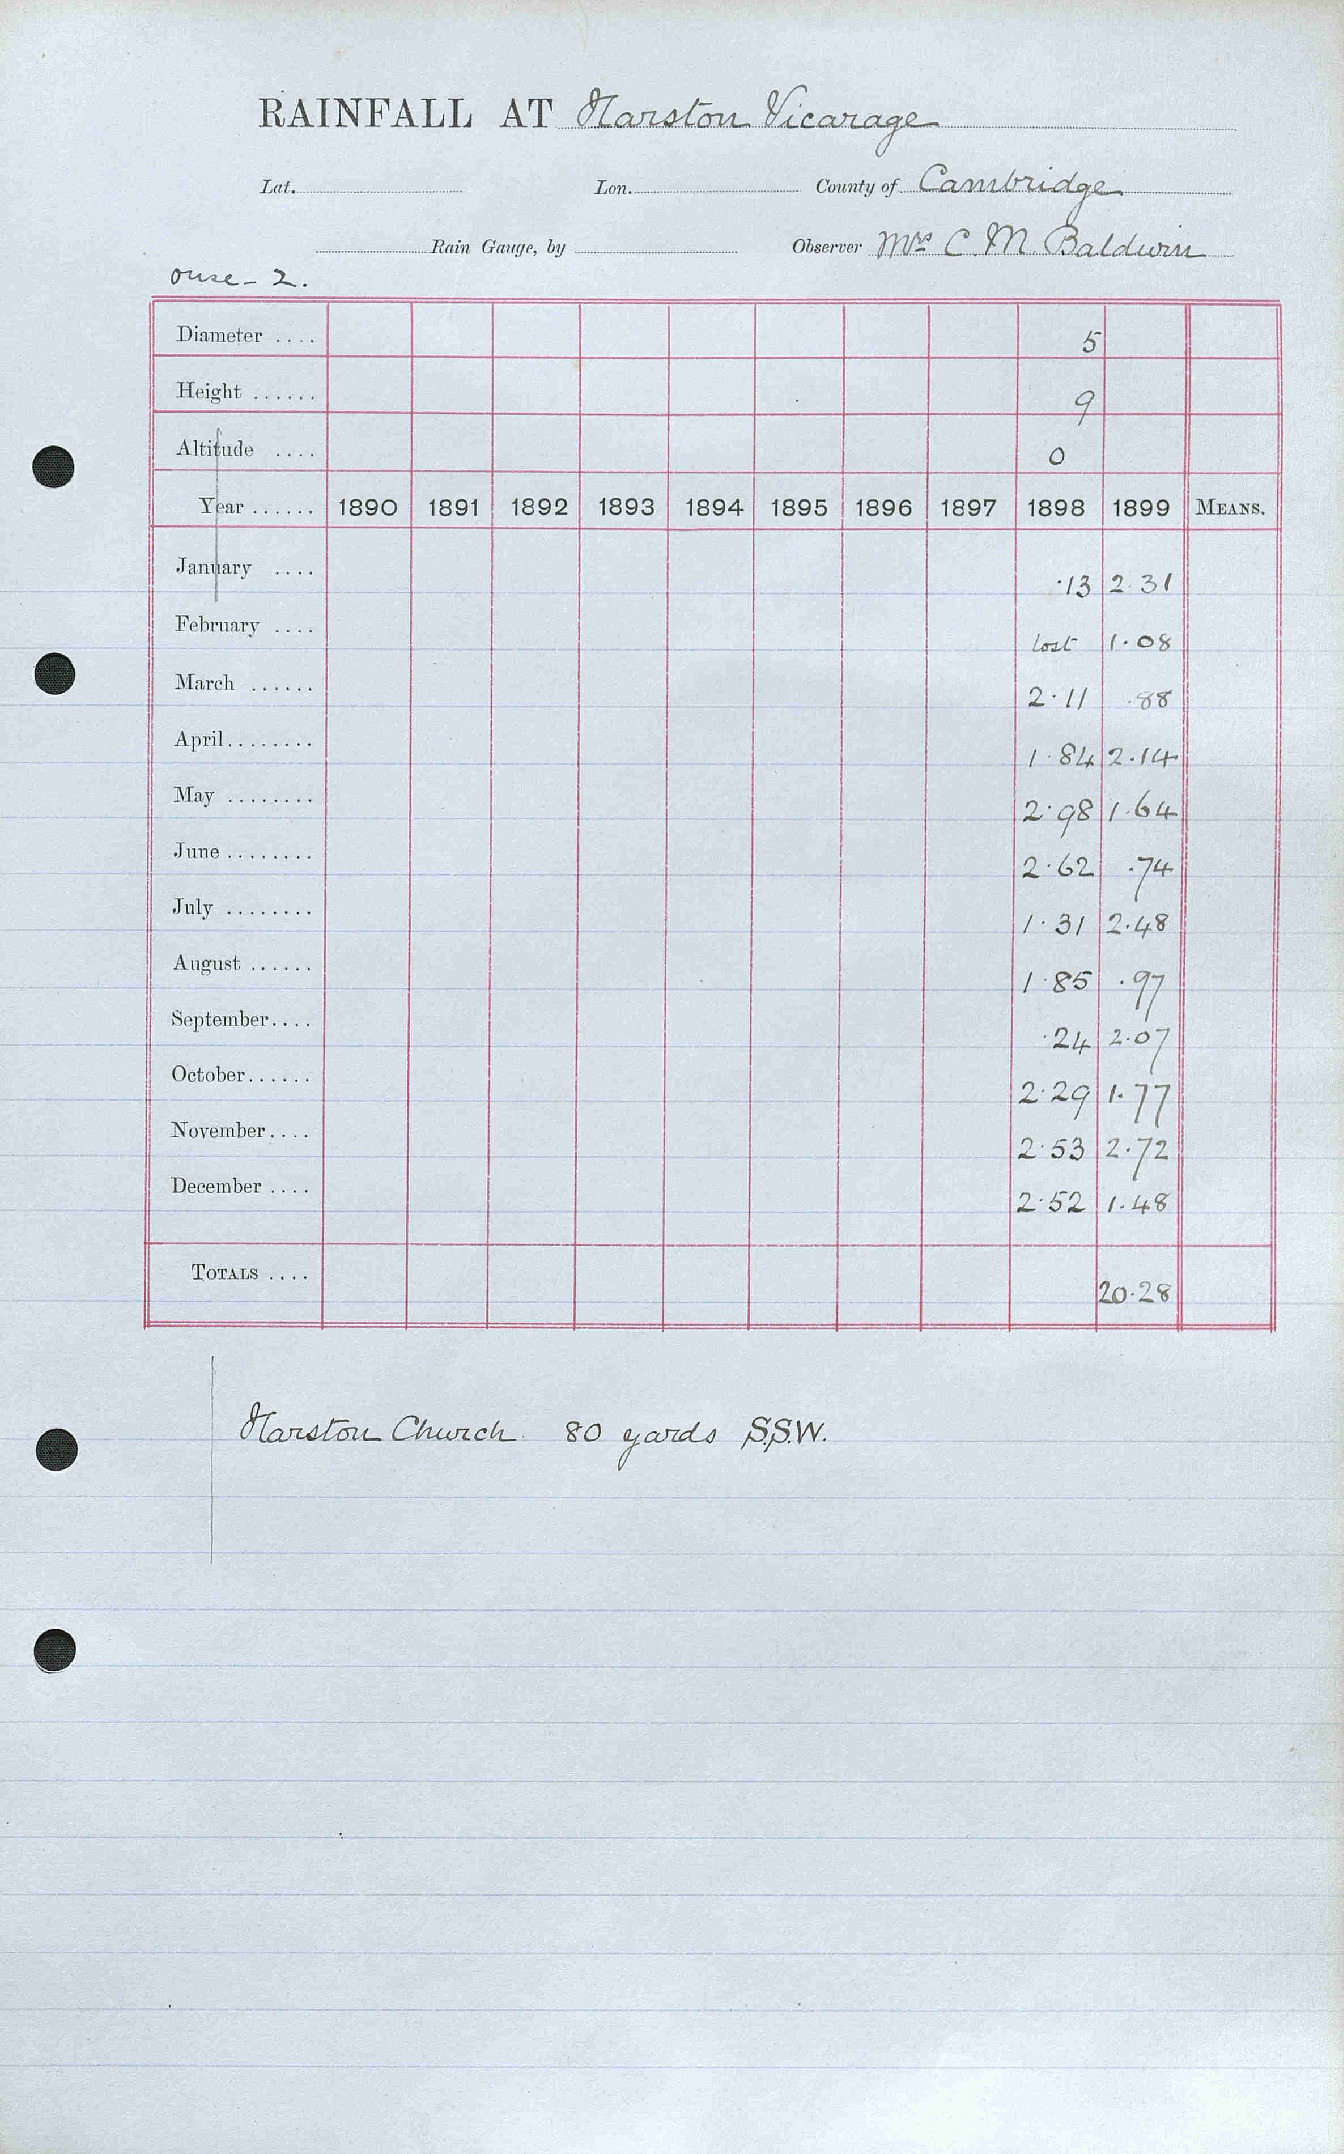 RAINFALL AT Harston Vicarage
Lat. Lon. County of Cambridge
Rain Gauge, by Observer Mrs C. M. Baldwin
ouse - 2.
Diameter .... 5
Height ...... 9
Altitude .... 0
Year ...... 1890 1891 1892 1893 1894 1895 1896 1897 1898 1899 MEANS.
January .... ·13 2.31
February .... lost 1.08
March ...... 2.11 .88
April........ 1.84 2.14
May ........ 2.98 1.64
June ........ 2.62 .74
July ........ 1.31 2.48
August ...... 1.85 .97
September.... .24 2.07
October...... 2.29 1.77
November.... 2.53 2.72
December .... 2.52 1.48
TOTALS .... 20.28
Harston Church 80 yards S.S.W.